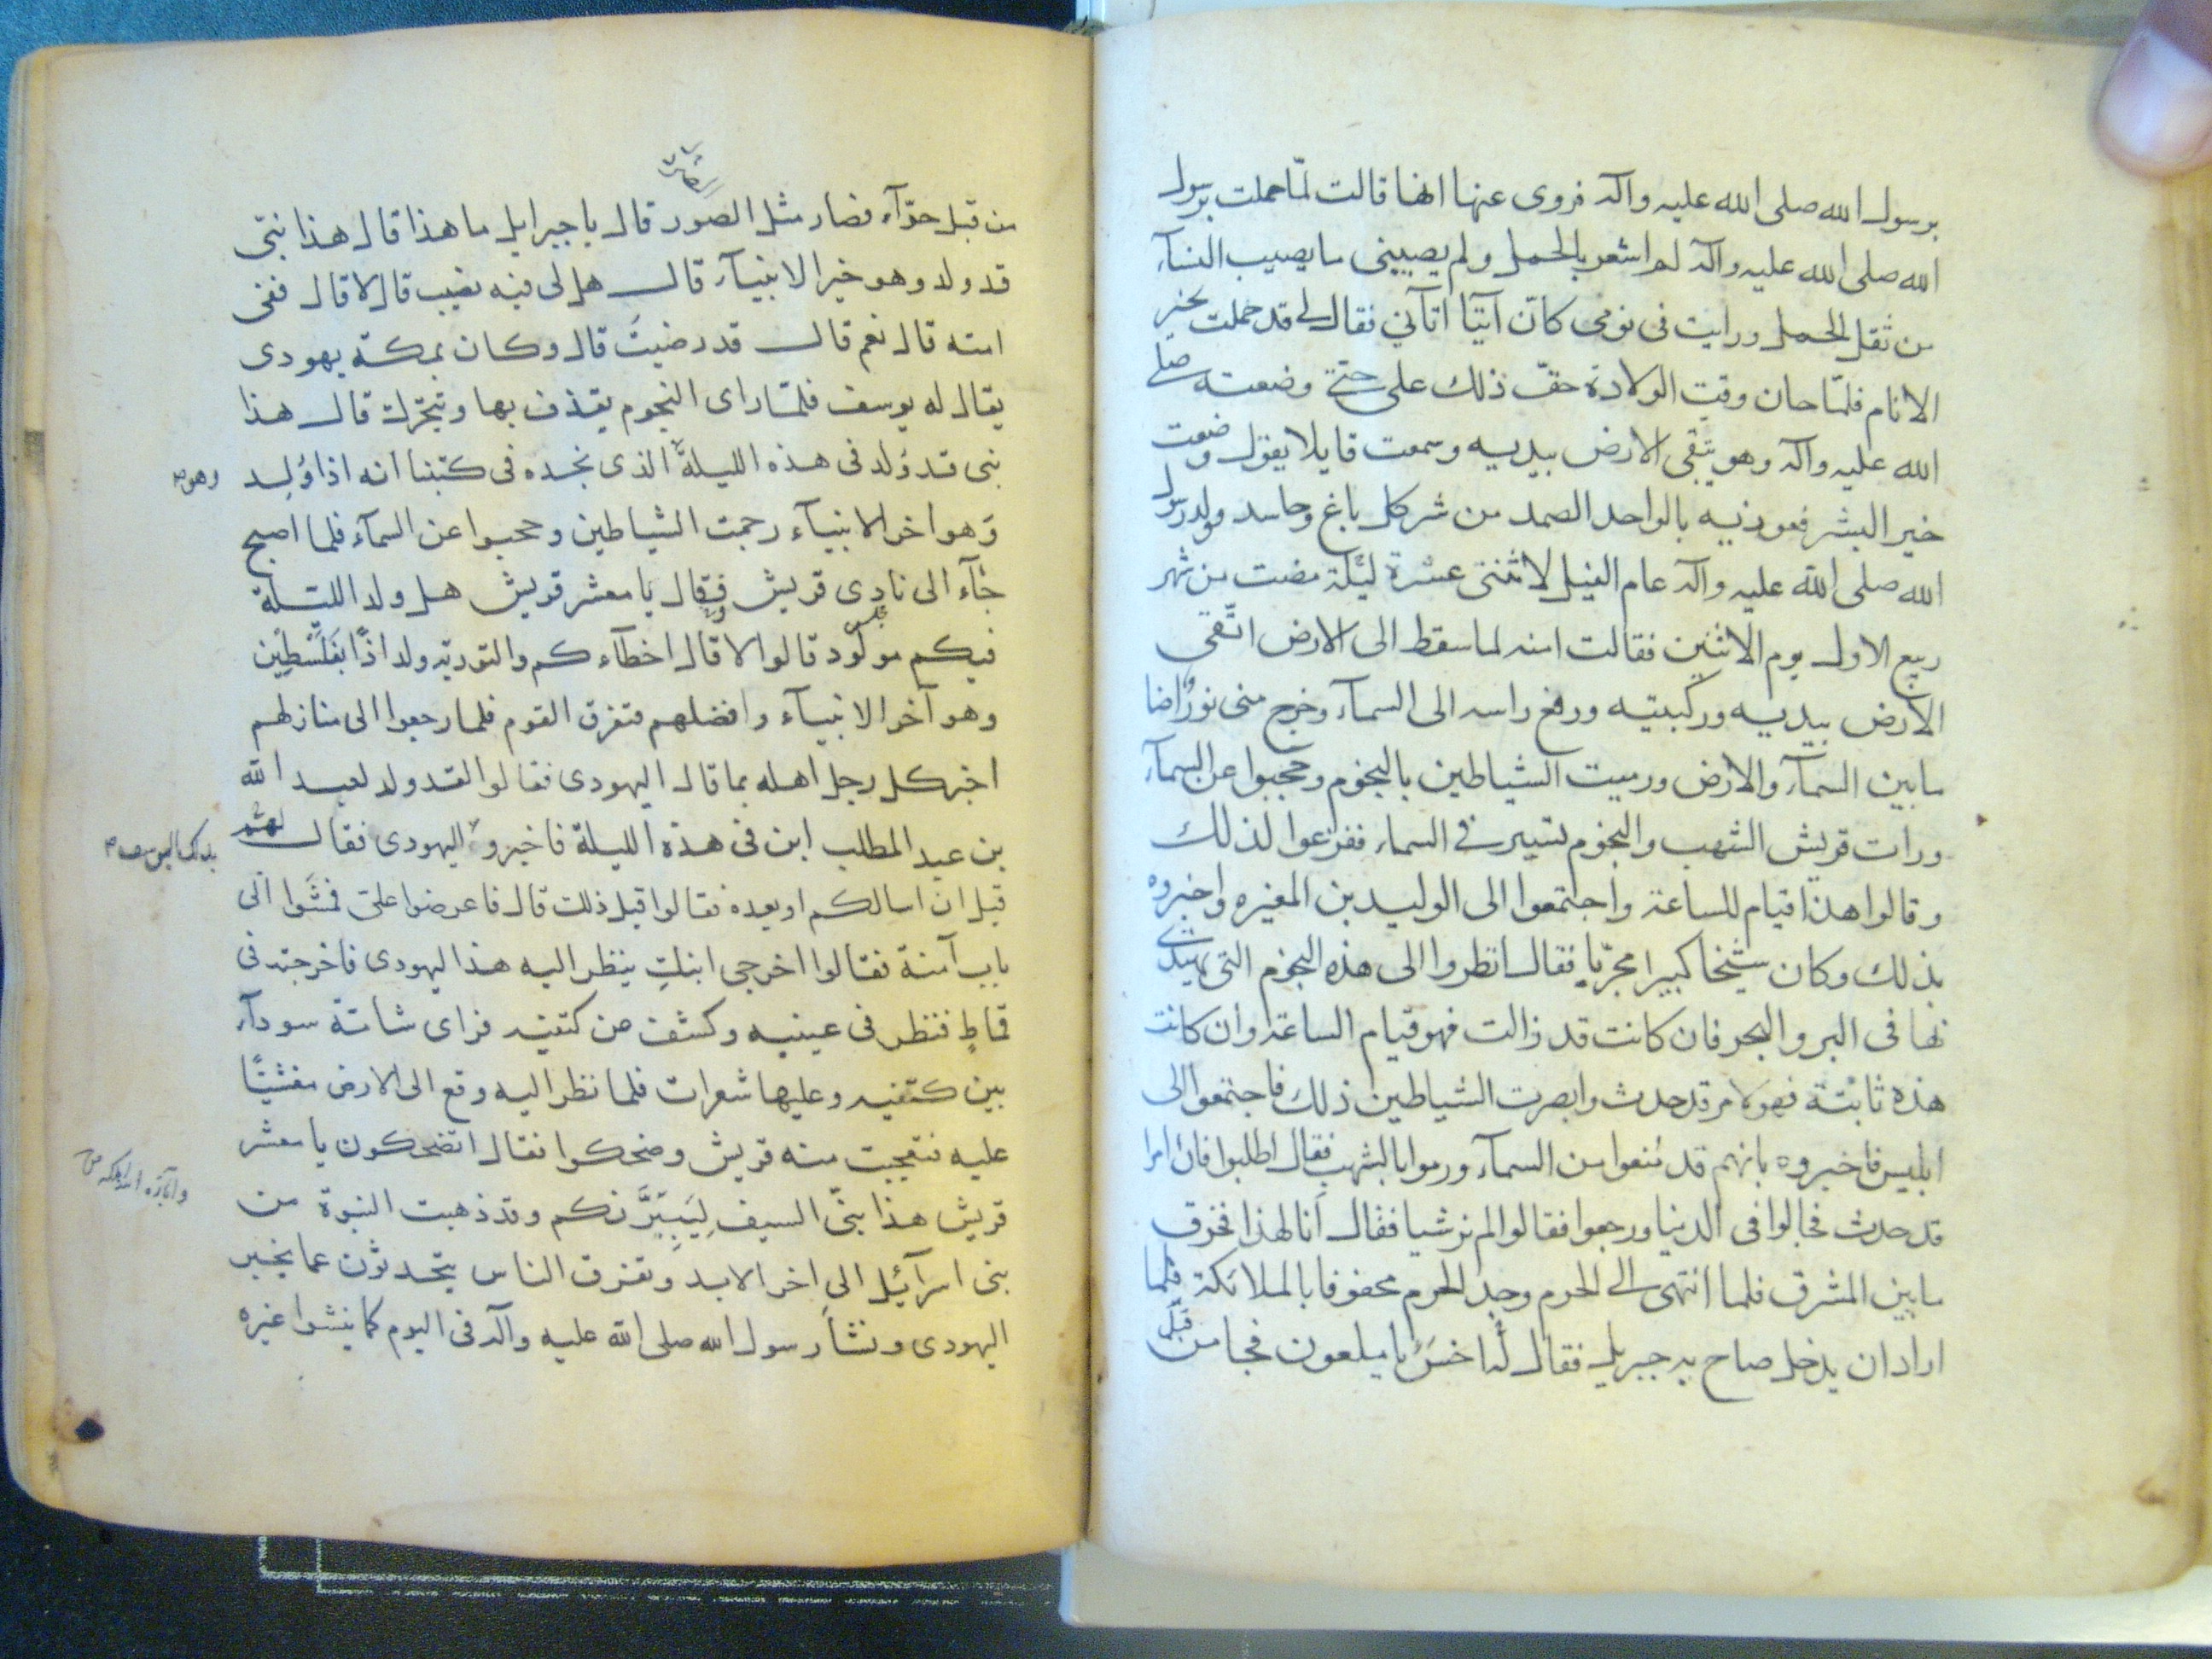 برسول الله صلى الله عليه وآله فروى عنها انها قالت لمّا حملت برسول
الله صلى الله عليه وآله لم اشعر بالحمل ولم يصيبنى ما يصيب النسآء
من ثقل الحمل ورايت فى نومى كانّ آتيًا اتآني فقال لے قد حملت بخير
الانام فلمّا حان وقت الولادة خفّ ذلك على حتى وضعته صلى
الله عليه وآله وهو يتّقى الارض بيديه وسمعت قايلا يقول وضعت
خير البشر فعوذيه بالواحد الصمد من شر كل باغ وحاسد وولد رسول
الله صلى الله عليه وآله عام الفيل لاثنتى عشرة ليلة مضت من شهر
ربيع الاول يوم الاثنين فقالت امنه لما سقط الى الارض اتّقى
الارض بيديه وركبتيه ورفع راسه الى السمآء وخرج منى نورٌ اضا
ما بين السمآء والارض ورميت الشياطين بالنجوم وحجبوا عن السمآء
ورات قريش الشهب والنجوم تسير فى السماء ففزعوا لذلك
وقالوا هذا قيام للساعة واجتمعوا الى الوليد بن المغيره واخبروه
بذلك وكان شيخا كبيرا مجرّبا فقال انظروا الى هذه النجوم التى يهتدى
بها فى البر والبحر فان كانت قد زالت فهو قيام الساعة وان كانت
هذه ثابتة فهو لامر قد حدث وابصرت الشياطين ذلك فاجتمعوا الى
ابليس فاخبروه بانهم قد مُنعوا من السمآء ورموا بالشهب فقال اطلبوا فان امرا
قد حدث فجالوا فى الدنيا ورجعوا فقالوا لم نر شيا فقال أنا لهذا فخرق
ما بين المشرق فلما انتهى الى الحرم وجد الحرم محفوفا بالملائكة فلما
اراد ان يدخل صاح به جبريل فقال له اخسَ يا ملعون فجا من قبَل
من قبل حوّآء فصار مثل الصور قال يا جبرايل ما هذا قال هذا نبىّ
قد ولد وهو خير الانبيآء قال هل لى فيه نصيب قال لا قال ففى
امته قال نعم قال قد رضيتُ قال وكان بمكة يهودى
يقال له يوسف فلمّا راى النجوم يقذف بها وتتحرّك قال هذا
نبى قد وُلد فى هذه الليلة الذى نجده فى كتبنا انه اذا وُلِد
وهو
وَهوا خر الانبيآء رجمت الشياطين وحجبوا عن السمآء فلما اصبح
جآء الى نادى قريش فقال يا معشر قريش هل ولد الليلة
فيكم مولود قالوا لا قال اخطآءكم والتوريه ولد اذًا بفَلَسْطِين
وهو آخر الانبيآء وافضلهم فتفرق القوم فلما رجعوا الى منازلهم
اخبر كل رجل اهله بما قال اليهودى فقالوا لقد ولد لعبد الله
بن عبد المطلب ابن فى هذه الليلة فاخبروا اليهودى فقال لهم
قبل ان اسالكم او بعده فقالوا قبل ذلك قال فاعرضوا علىّ فمشَوا الى
باب آمنة فقالوا اخرجى ابنكِ ينظر اليه هذا اليهودى فاخرجته فى
قماطٍ فنظر فى عينيه وكشف عن كتفيه فراى شامة سودآء
بين كتفيه وعليها شعرات فلما نظر اليه وقع الى الارض مغشيًّا
عليه فتعجبت منه قريش وضحكوا فقال اتضحكون يا معشر
قريش هذا نبىّ السيف لِيَبِيِّرَنَّكم وقد ذهبت النبوة من
بنى اسرآئيل الى اخر الابد وتفرق الناس يتحدثون عما يخبر
اليهودى ونشأ رسول الله صلى الله عليه وآله فى اليوم كما ينشوا غيره